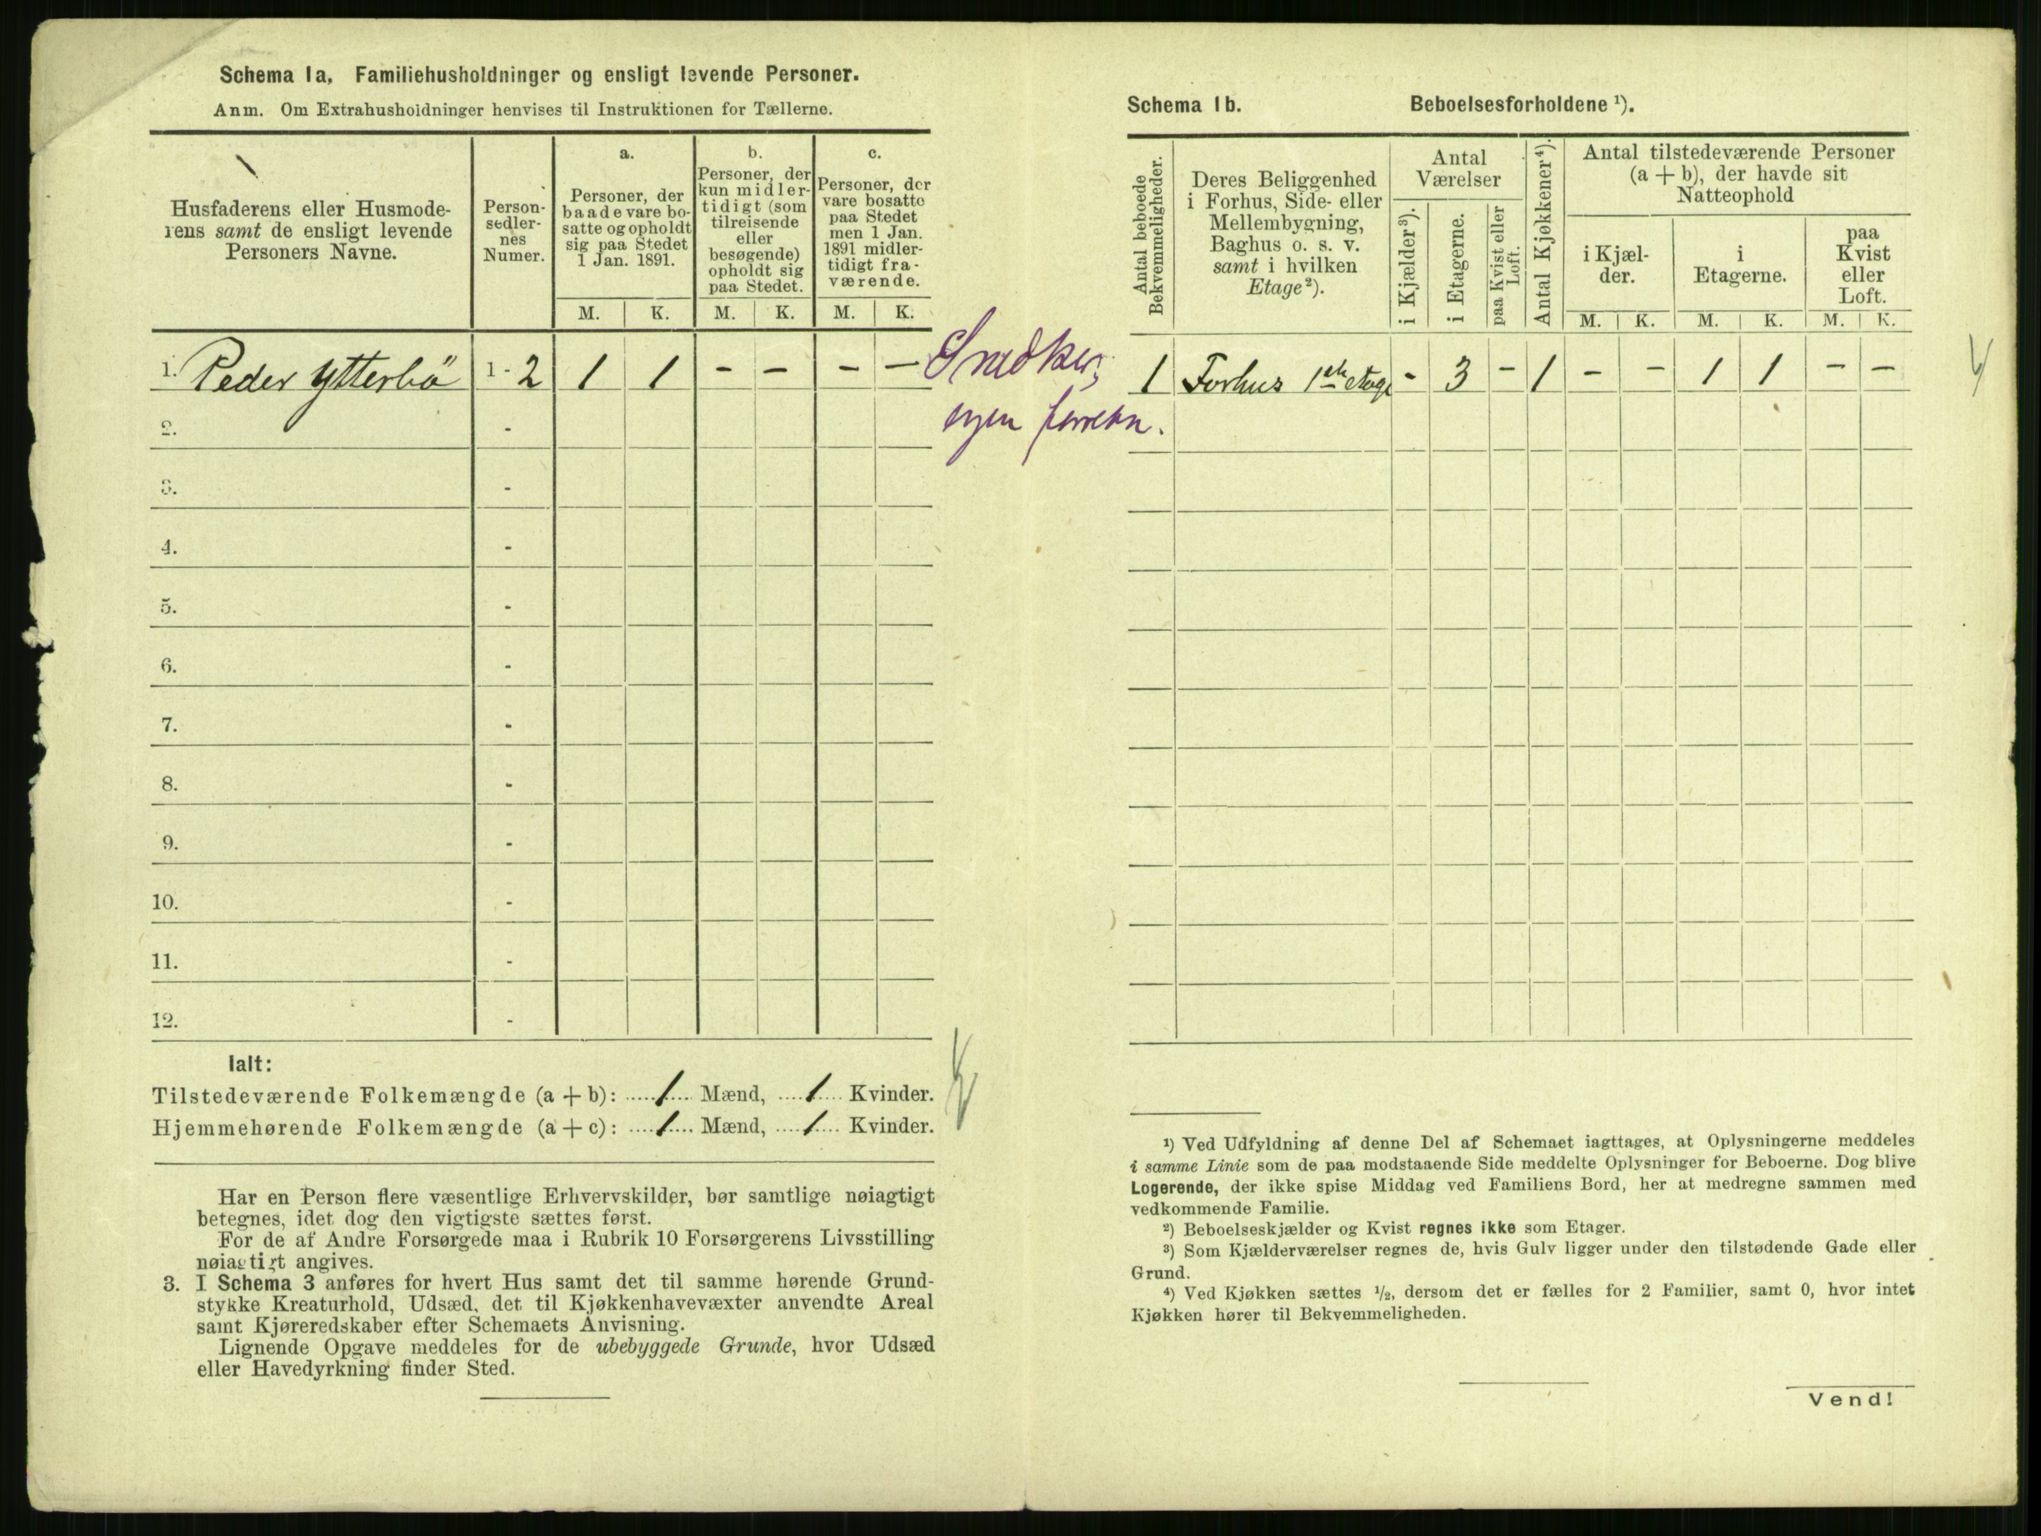 Schema 1a. Familiehusholdninger og ensligt levende Personer.
Anm. Om Extrahusholdninger henvises til Instruktionen for Tællerne.
Husfaderens eller Husmode-
rens samt de ensligt levende
Personers Navne.
Person-
sedler-
nes
Numer.
a.
Personer, der
baade vare bo-
satte og opholdt
sig paa Stedet
1 Jan. 1891.
b.
Personer, der
kun midler-
tidigt (som
tilreisende
eller
besøgende)
opholdt sig
paa Stedet.
c.
Personer, der
vare bosatte
paa Stedet
men 1 Jan.
1891 midler-
tidigt fra-
værende.
M. K. M. K. M. K.
1. Peder Ytterbö 1 - 2 1 1 - - - -
Snedker,
egen forretn.
2. -
3. -
4. -
5. -
6. -
7. -
8. -
9. -
10. -
11. -
12. -
Ialt:
Tilstedeværende Folkemængde (a + b): 1 Mænd, 1 Kvinder.
Hjemmehørende Folkemængde (a + c): 1 Mænd, 1 Kvinder.
Har en Person flere væsentlige Erhvervskilder, bør samtlige nøiagtigt
betegnes, idet dog den vigtigste sættes først.
For de af Andre Forsørgede maa i Rubrik 10 Forsørgerens Livsstilling
nøiagtigt angives.
3. I Schema 3 anføres for hvert Hus samt det til samme hørende Grund-
stykke Kreaturhold, Udsæd, det til Kjøkkenhavevæxter anvendte Areal
samt Kjøreredskaber efter Schemaets Anvisning.
Lignende Opgave meddeles for de ubebyggede Grunde, hvor Udsæd
eller Havedyrkning finder Sted.
Schema 1b. Beboelsesforholdene ¹).
Antal beboede
Bekvemmeligheder.
Deres Beliggenhed
i Forhus, Side- eller
Mellembygning,
Baghus o. s. v.
samt i hvilken
Etage ²).
Antal
Værelser
i Kjælder ³).
i Etagerne.
paa Kvist eller
Loft.
Antal Kjøkkener ⁴).
Antal tilstedeværende Personer
(a + b), der havde sit
Natteophold
i Kjæl-
der.
i
Etagerne.
paa
Kvist
eller
Loft.
M. K. M. K. M. K.
1 Forhus 1ste etage - 3 - 1 - - 1 1 - -
¹) Ved Udfyldning af denne Del af Schemaet iagttages, at Oplysningerne meddeles
i samme Linie som de paa modstaaende Side meddelte Oplysninger for Beboerne. Dog blive
Logerende, der ikke spise Middag ved Familiens Bord, her at medregne sammen med
vedkommende Familie.
²) Beboelseskjælder og Kvist regnes ikke som Etager.
³) Som Kjælderværelser regnes de, hvis Gulv ligger under den tilstødende Gade eller
Grund.
⁴) Ved Kjøkken sættes ½, dersom det er fælles for 2 Familier, samt 0, hvor intet
Kjøkken hører til Bekvemmeligheden.
Vend!